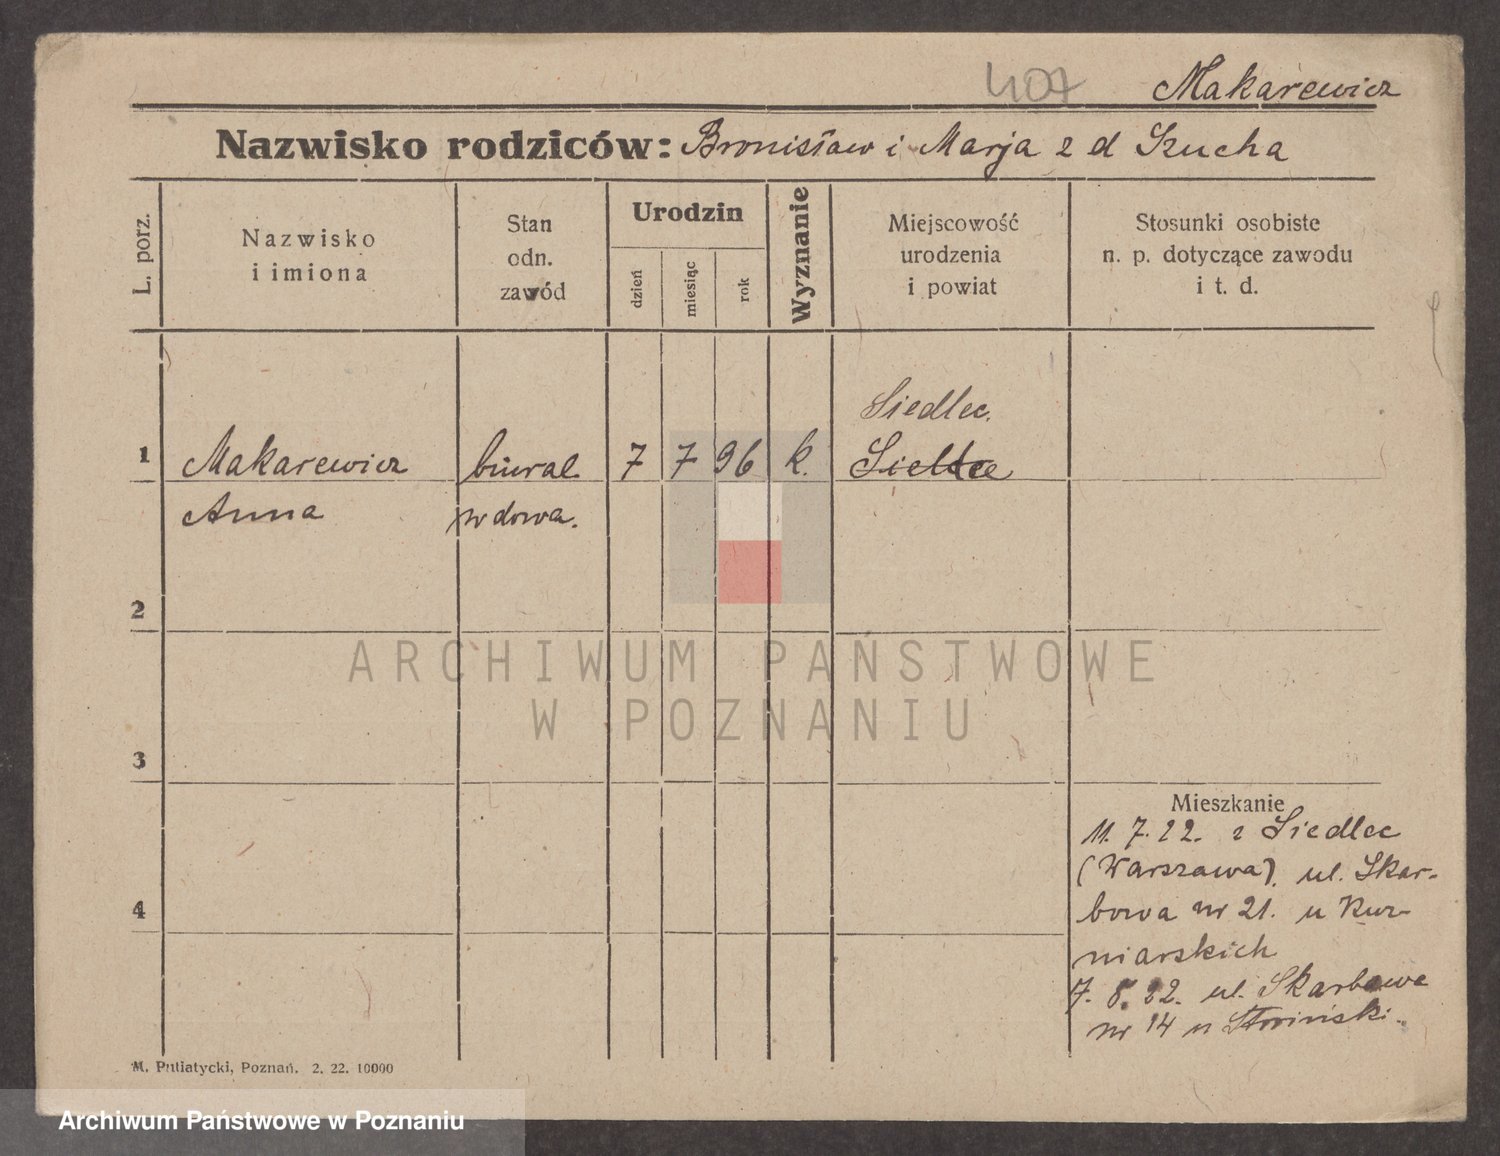 407 Makarewicz
Nazwisko rodziców: Bronisław i Marja z d Szucha
L. porz.
Nazwisko
i imiona
Stan
odn.
zawód
Urodzin
dzień
miesiąc
rok
Wyznanie
Miejscowość
urodzenia
i powiat
Stosunki osobiste
n. p. dotyczące zawodu
i t. d.
Siedlec.
1 Makarewicz biural 7 7 96 k. Sieltce
Anna wdowa.
2
ARCHIWUM PAŃSTWOWE
W POZNANIU
3
Mieszkanie
11. 7. 22. z Siedlec
(Warszawa). ul. Skar-
bowa nr 21. u
4
niarskich
7. 8. 22. ul. Skarbowa
nr 14 u
M. Putiatycki, Poznań. 2. 22. 10000
Archiwum Państwowe w Poznaniu